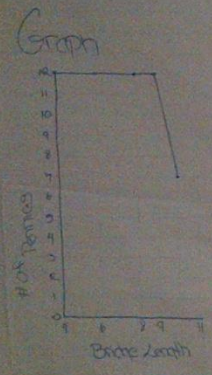 Graph
12
11
10
9
8
7
6
5
4
3
2
1
0
# of Pennies
4 6 8 9 11
Bridge Length